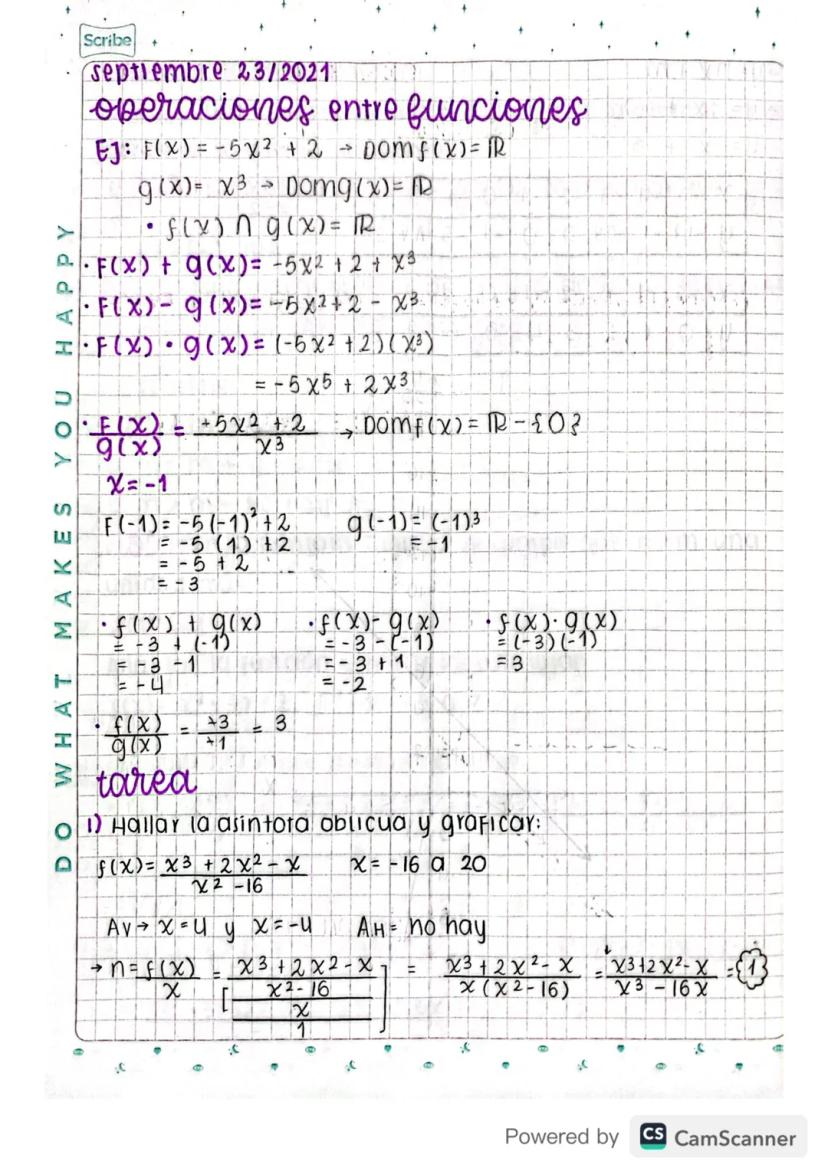 Scribe
septiembre 23/2021
operaciones entre funciones
Ej: F(x) = -5x² + 2 → Dom f(x) = ℝ
g(x) = x³ → Dom g(x) = ℝ
• f(x) ∩ g(x) = ℝ
• F(x) + g(x) = -5x² + 2 + x³
• F(x) - g(x) = -5x² + 2 - x³
• F(x) • g(x) = (-5x² + 2)(x³)
= -5x⁵ + 2x³
• F(x)/g(x) = +5x² + 2 / x³ → Dom f(x) = ℝ - {0}
x = -1
F(-1) = -5(-1)² + 2    g(-1) = (-1)³
= -5 (1) + 2    = -1
= -5 + 2
= -3
• f(x) + g(x)    • f(x) - g(x)    • f(x) · g(x)
= -3 + (-1)    = -3 - (-1)    = (-3)(-1)
= -3 - 1    = -3 + 1    = 3
= -4    = -2
• f(x)/g(x) = +3/+1 = 3
tarea
1) Hallar la asíntota oblicua y graficar:
f(x) = x³ + 2x² - x / x² - 16    x = -16 a 20
AV → x = 4 y x = -4    AH = no hay
→ n = f(x)/x = [x³ + 2x² - x / x² - 16 / x / 1] = x³ + 2x² - x / x(x² - 16) = x³ + 2x² - x / x³ - 16x = {1}
DO WHAT MAKES YOU HAPPY
Powered by CS CamScanner